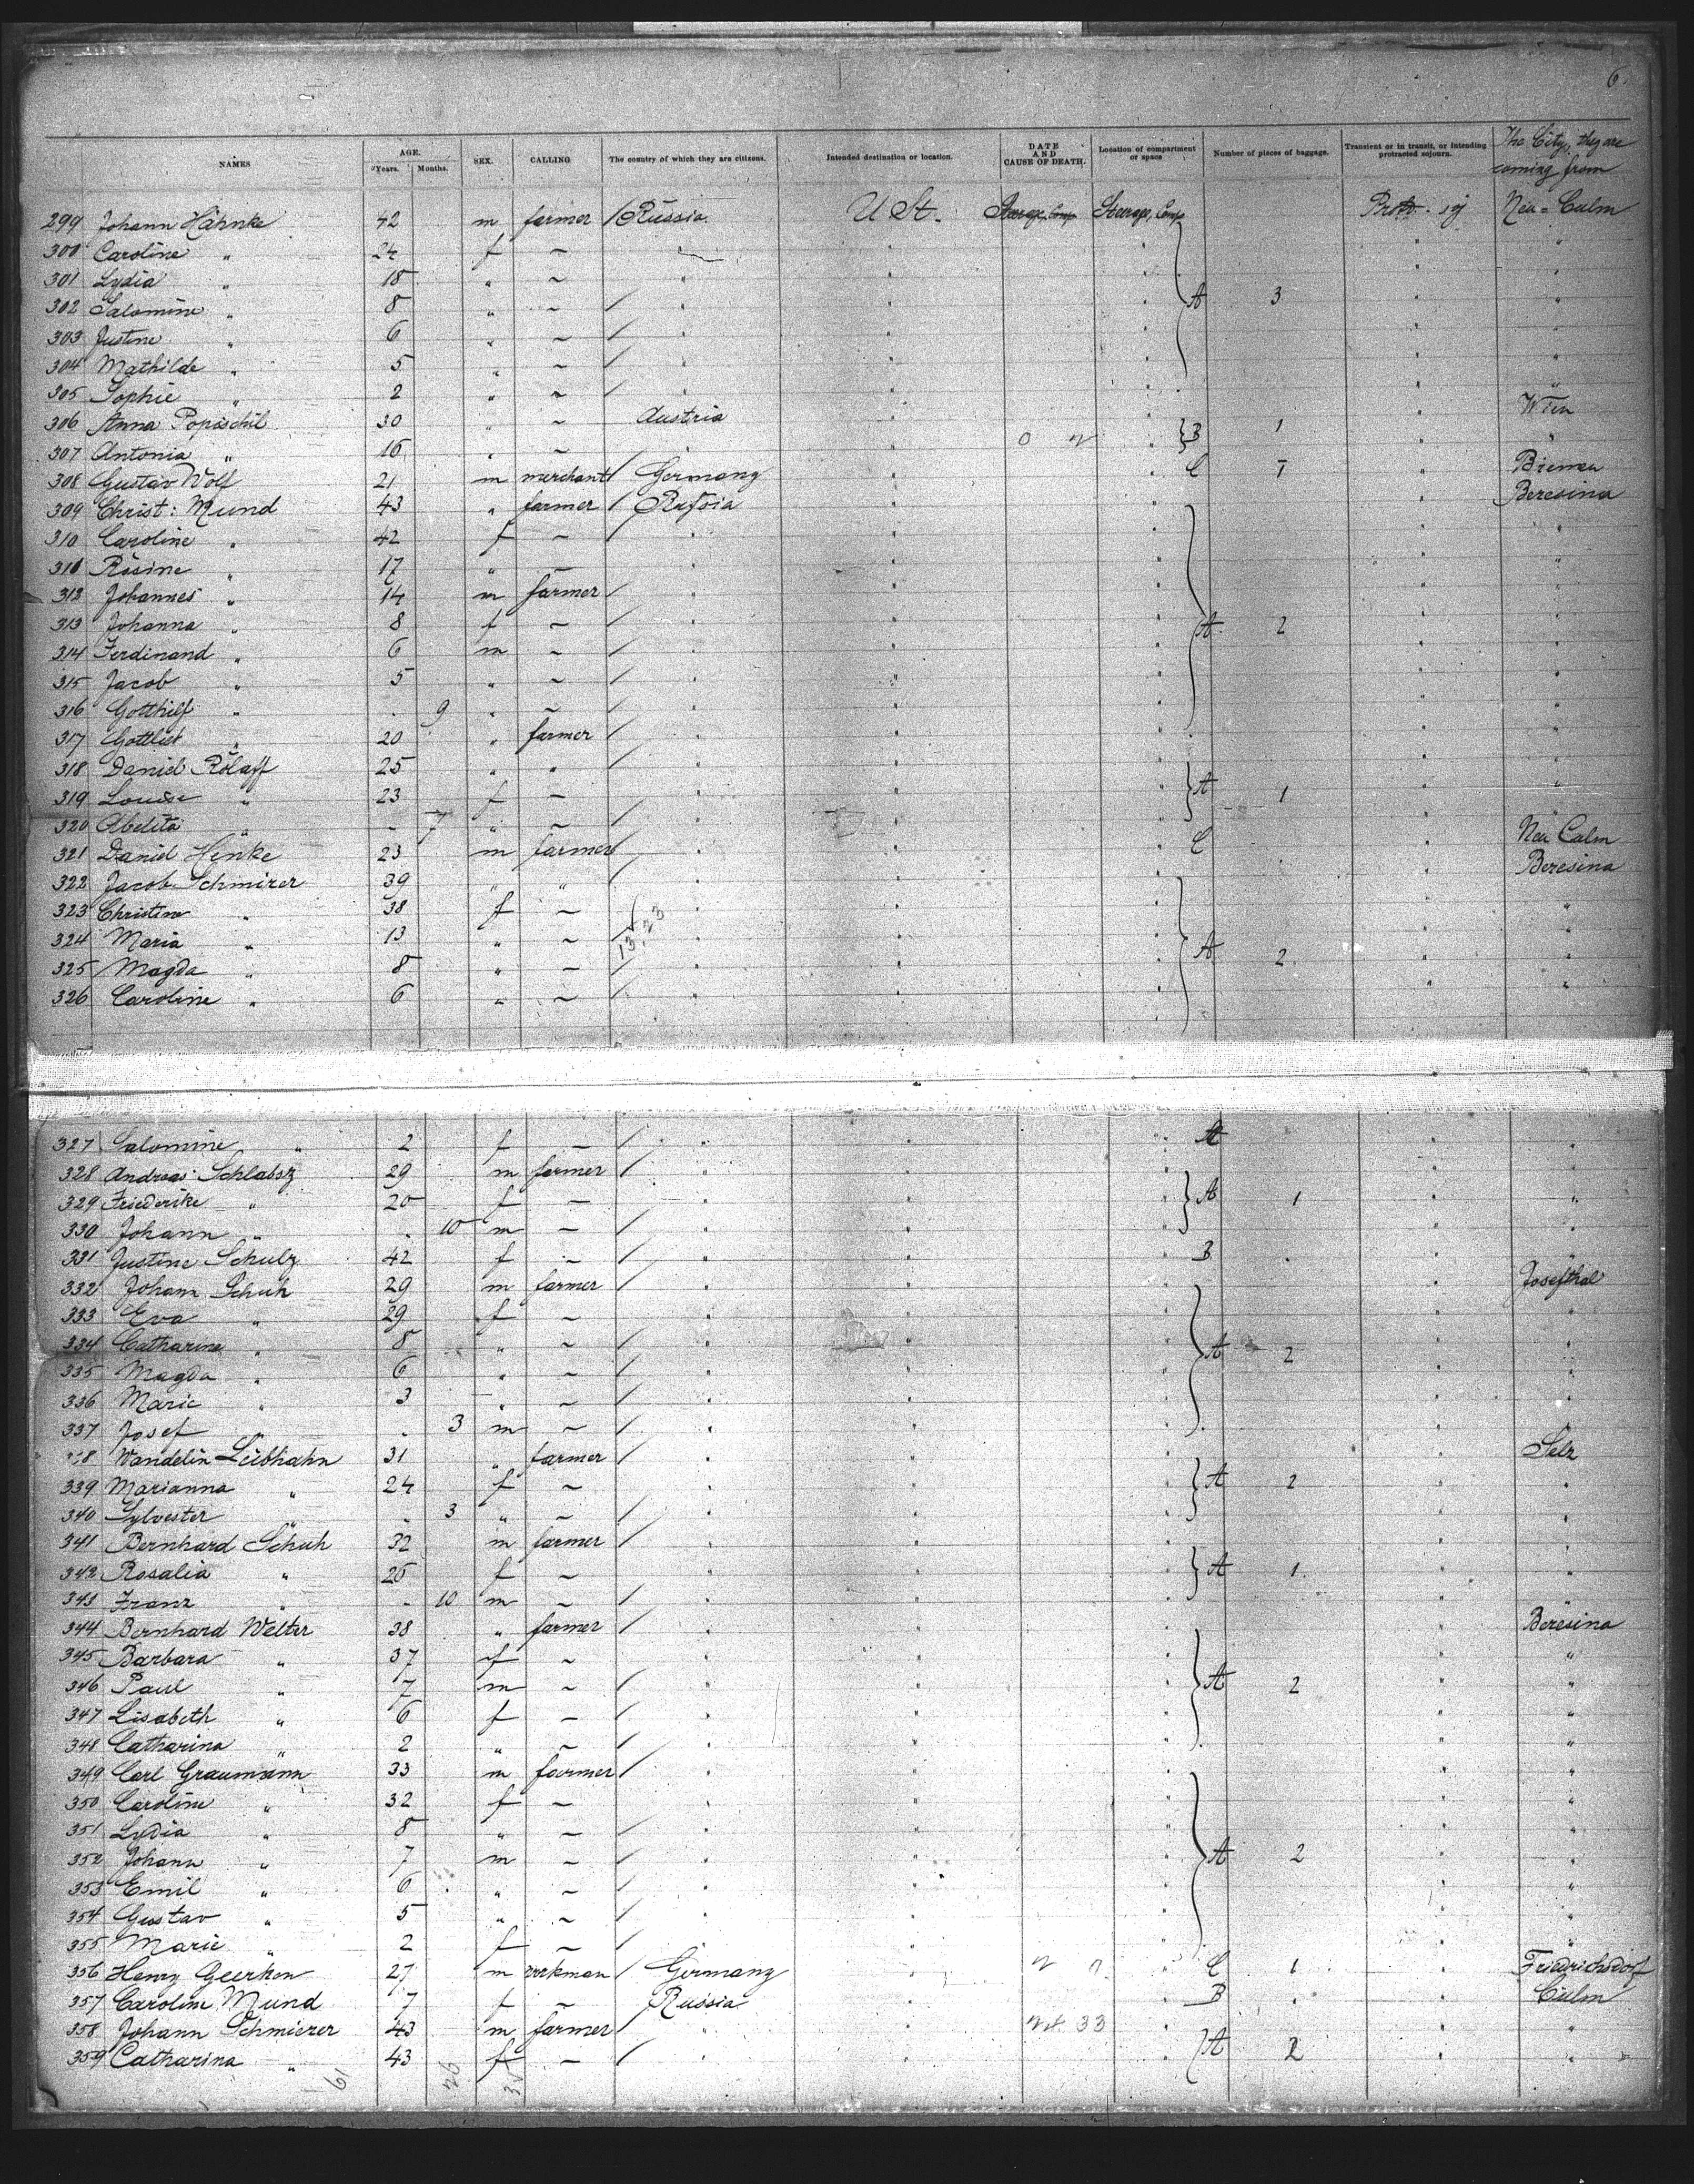 6.
NAMES AGE. Years. Months. SEX. CALLING The country of which they are citizens. Intended destination or location. DATE AND CAUSE OF DEATH. Location of compartment or space Number of pieces of baggage. Transient or in transit, or intending protracted sojourn. The City, they are coming from
299 Johann Hähnke 42 m farmer / Russia. U St. Steerage, Comp Steerage, Comp Protr. soj Neu-Culm
300 Caroline " 24 f ~ "
301 Lydia " 18 " ~ " "
302 Salomine " 8 " ~ / " A 3 "
303 Justine " 6 " ~ / " "
304 Mathilde " 5 " ~ / " "
305 Sophie " 2 " ~ / " "
306 Anna Popischil 30 " ~ Austria " B 1 " Wien
307 Antonia " 16 " ~ " "
308 Gustav Wolf 21 m merchant / Germany " C 1 " Bremen
309 Christ: Mund 43 " farmer / Russia " " Beresina
310 Caroline " 42 f ~ " "
311 Rosine " 17 " ~ " "
312 Johannes " 14 m farmer / " "
313 Johanna " 8 f ~ / " A 2 "
314 Ferdinand " 6 m ~ / " "
315 Jacob " 5 " ~ / " "
316 Gotthilf " - 9 " ~ / " "
317 Gottlieb " 20 " farmer / " "
318 Daniel Rölaff 25 " " / " "
319 Louise " 23 f ~ " A 1 "
320 " - 7 " ~ / " "
321 Daniel Henke 23 m farmer / " C " Neu Culm
322 Jacob Schmirer 39 " " / " " Beresina
323 Christine " 38 f ~ " "
324 Maria " 13 " ~ / 13.23 " "
325 Magda " 8 " ~ / " A 2. "
326 Caroline " 6 " ~ / " "
327 Salomine " 2 f ~ / " A "
328 Andreas Schlabsz 29 m farmer / " "
329 Friederike " 20 f ~ " A 1 "
330 Johann " - 10 m ~ / " "
331 Justine Schulz 42 f ~ / " B "
332 Johann Schuh 29 m farmer / " " Josefthal
333 Eva " 29 f ~ " "
334 Catharine " 8 " ~ / " A 2 "
335 Magda " 6 " ~ / " "
336 Marie " 3 " ~ / " "
337 Josef " - 3 m ~ / " "
338 Wandelin Leibhahn 31 " farmer / " " Selz
339 Marianna " 24 f ~ " A 2 "
340 Sylvester " - 3 " ~ / " "
341 Bernhard Schuh 32 m farmer / " "
342 Rosalia " 25 f ~ " A 1. "
343 Franz " - 10 m ~ / " "
344 Bernhard Welter 38 " farmer / " " Beresina
345 Barbara " 37 f ~ " "
346 Paul " 7 m ~ / " A 2 "
347 Lisabeth " 6 f ~ / " "
348 Catharina " 2 " ~ / " "
349 Carl Graumann 33 m farmer / " "
350 Caroline " 32 f ~ " "
351 Lydia " 8 " ~ / " "
352 Johann " 7 m ~ / " A 2 "
353 Emil " 6 " ~ / " "
354 Gustav " 5 " ~ / " "
355 Marie " 2 f ~ / " "
356 Henry Geerken 27 m workman / Germany " C 1 " Friedrichsdorf
357 Caroline Mund 7 f ~ Russia " B " Culm
358 Johann Schmierer 43 m farmer / " 33 "
359 Catharina " 43 f ~ / " A 2 "
61 26 35